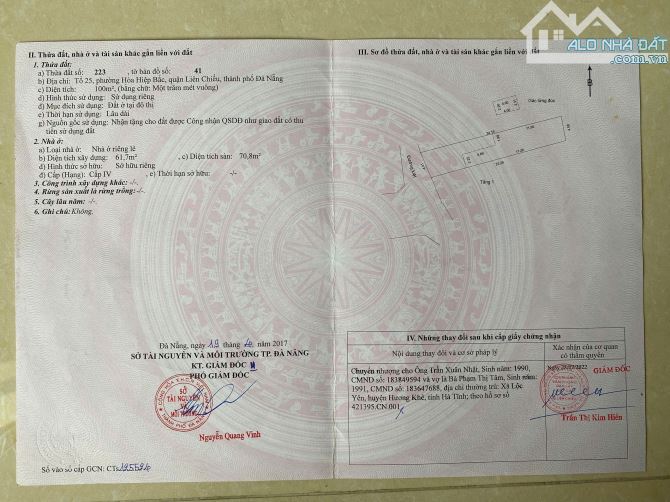 ALO NHÀ ĐẤT
II. Thửa đất, nhà ở và tài sản khác gắn liền với đất
1. Thửa đất:
a) Thửa đất số: 223 , tờ bản đồ số: 41
b) Địa chỉ: Tổ 25, phường Hòa Hiệp Bắc, quận Liên Chiểu, thành phố Đà Nẵng
c) Diện tích: 100m², (bằng chữ: Một trăm mét vuông)
d) Hình thức sử dụng: Sử dụng riêng
đ) Mục đích sử dụng: Đất ở tại đô thị
e) Thời hạn sử dụng: Lâu dài
g) Nguồn gốc sử dụng: Nhận tặng cho đất được Công nhận QSDĐ như giao đất có thu
tiền sử dụng đất
2. Nhà ở:
a) Loại nhà ở: Nhà ở riêng lẻ
b) Diện tích xây dựng: 61,7m² , c) Diện tích sàn: 70,8m²
d) Hình thức sở hữu: Sở hữu riêng
đ) Cấp (Hạng): Cấp IV , e) Thời hạn sở hữu: -/-
3. Công trình xây dựng khác: -/-
4. Rừng sản xuất là rừng trồng: -/-
5. Cây lâu năm: -/-
6. Ghi chú: Không.
Đà Nẵng, ngày 19 tháng 4 năm 2017
SỞ TÀI NGUYÊN VÀ MÔI TRƯỜNG TP. ĐÀ NẴNG
KT. GIÁM ĐỐC
PHÓ GIÁM ĐỐC
SỞ
TÀI NGUYÊN
VÀ
MÔI TRƯỜNG
Nguyễn Quang Vinh
Số vào sổ cấp GCN: CTs
III. Sơ đồ thửa đất, nhà ở và tài sản khác gắn liền với đất
B
Gác lửng đúc
Tầng 1
IV. Những thay đổi sau khi cấp giấy chứng nhận
Nội dung thay đổi và cơ sở pháp lý
Xác nhận của cơ quan
có thẩm quyền
Chuyển nhượng cho Ông Trần Xuân Nhật, Sinh năm: 1990,
CMND số: 183849594 và vợ là Bà Phạm Thị Tâm, Sinh năm:
1991, CMND số: 183647688, địa chỉ thường trú: Xã Lộc
Yên, huyện Hương Khê, tỉnh Hà Tĩnh; theo hồ sơ số
421395.CN.001
GIÁM ĐỐC
Trần Thị Kim Hiền